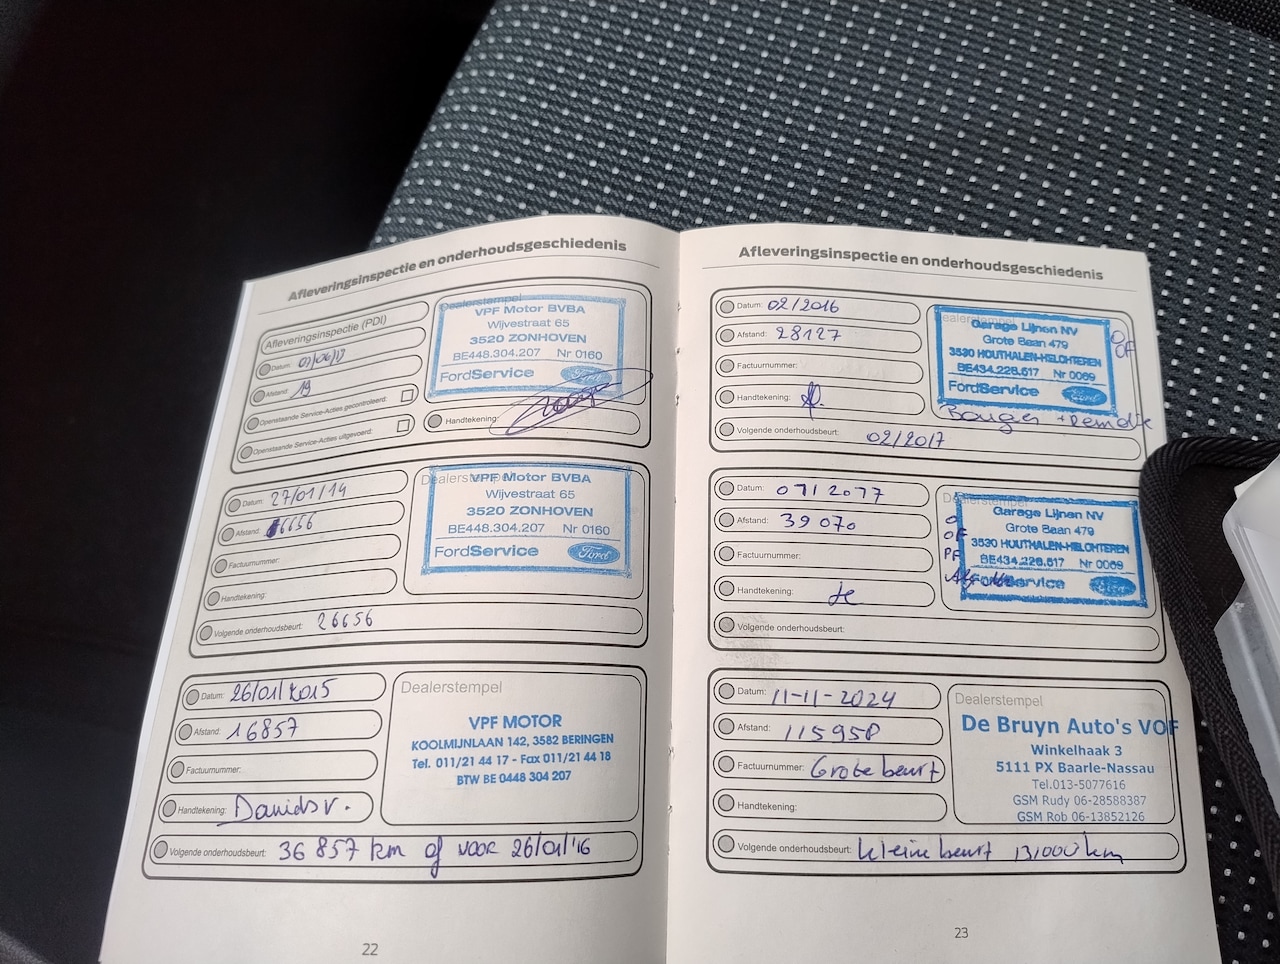 Afleveringsinspectie en onderhoudsgeschiedenis
Afleveringsinspectie (PDI)
Datum:
Afstand: 19
Openstaande Service-Acties gecontroleerd:
Openstaande Service-Acties uitgevoerd:
Dealerstempel
VPF Motor BVBA
Wijvestraat 65
3520 ZONHOVEN
BE448.304.207 Nr 0160
FordService Ford
Handtekening:
Datum: 27/01/14
Afstand: 6656
Factuurnummer:
Handtekening:
Volgende onderhoudsbeurt: 26656
Dealerstempel
VPF Motor BVBA
Wijvestraat 65
3520 ZONHOVEN
BE448.304.207 Nr 0160
FordService Ford
Datum: 26/01/2015
Afstand: 16857
Factuurnummer:
Handtekening: Davids v.
Volgende onderhoudsbeurt: 36 857 km of voor 26/01/'16
Dealerstempel
VPF MOTOR
KOOLMIJNLAAN 142, 3582 BERINGEN
Tel. 011/21 44 17 - Fax 011/21 44 18
BTW BE 0448 304 207
22
Afleveringsinspectie en onderhoudsgeschiedenis
Datum: 02/2016
Afstand: 28127
Factuurnummer:
Handtekening:
Volgende onderhoudsbeurt: 02/2017
Dealerstempel
Garage Lijnen NV
Grote Baan 479
3530 HOUTHALEN-HELCHTEREN
BE434.226.617 Nr 0069
FordService Ford
OF
Bougies +
Datum: 07/2017
Afstand: 39070
Factuurnummer:
Handtekening:
Volgende onderhoudsbeurt:
Dealerstempel
Garage Lijnen NV
Grote Baan 479
3530 HOUTHALEN-HELCHTEREN
BE434.226.617 Nr 0069
FordService Ford
OF
PF
Datum: 11-11-2024
Afstand: 115958
Factuurnummer: Grote beurt
Handtekening:
Volgende onderhoudsbeurt: kleine beurt 131000 km
Dealerstempel
De Bruyn Auto's VOF
Winkelhaak 3
5111 PX Baarle-Nassau
Tel.013-5077616
GSM Rudy 06-28588387
GSM Rob 06-13852126
23